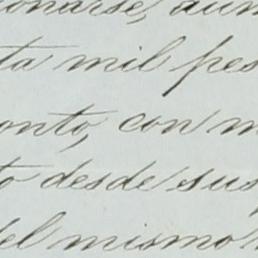 onarse, aun
ta mil pes
onto, con m
to desde sus
del mismo